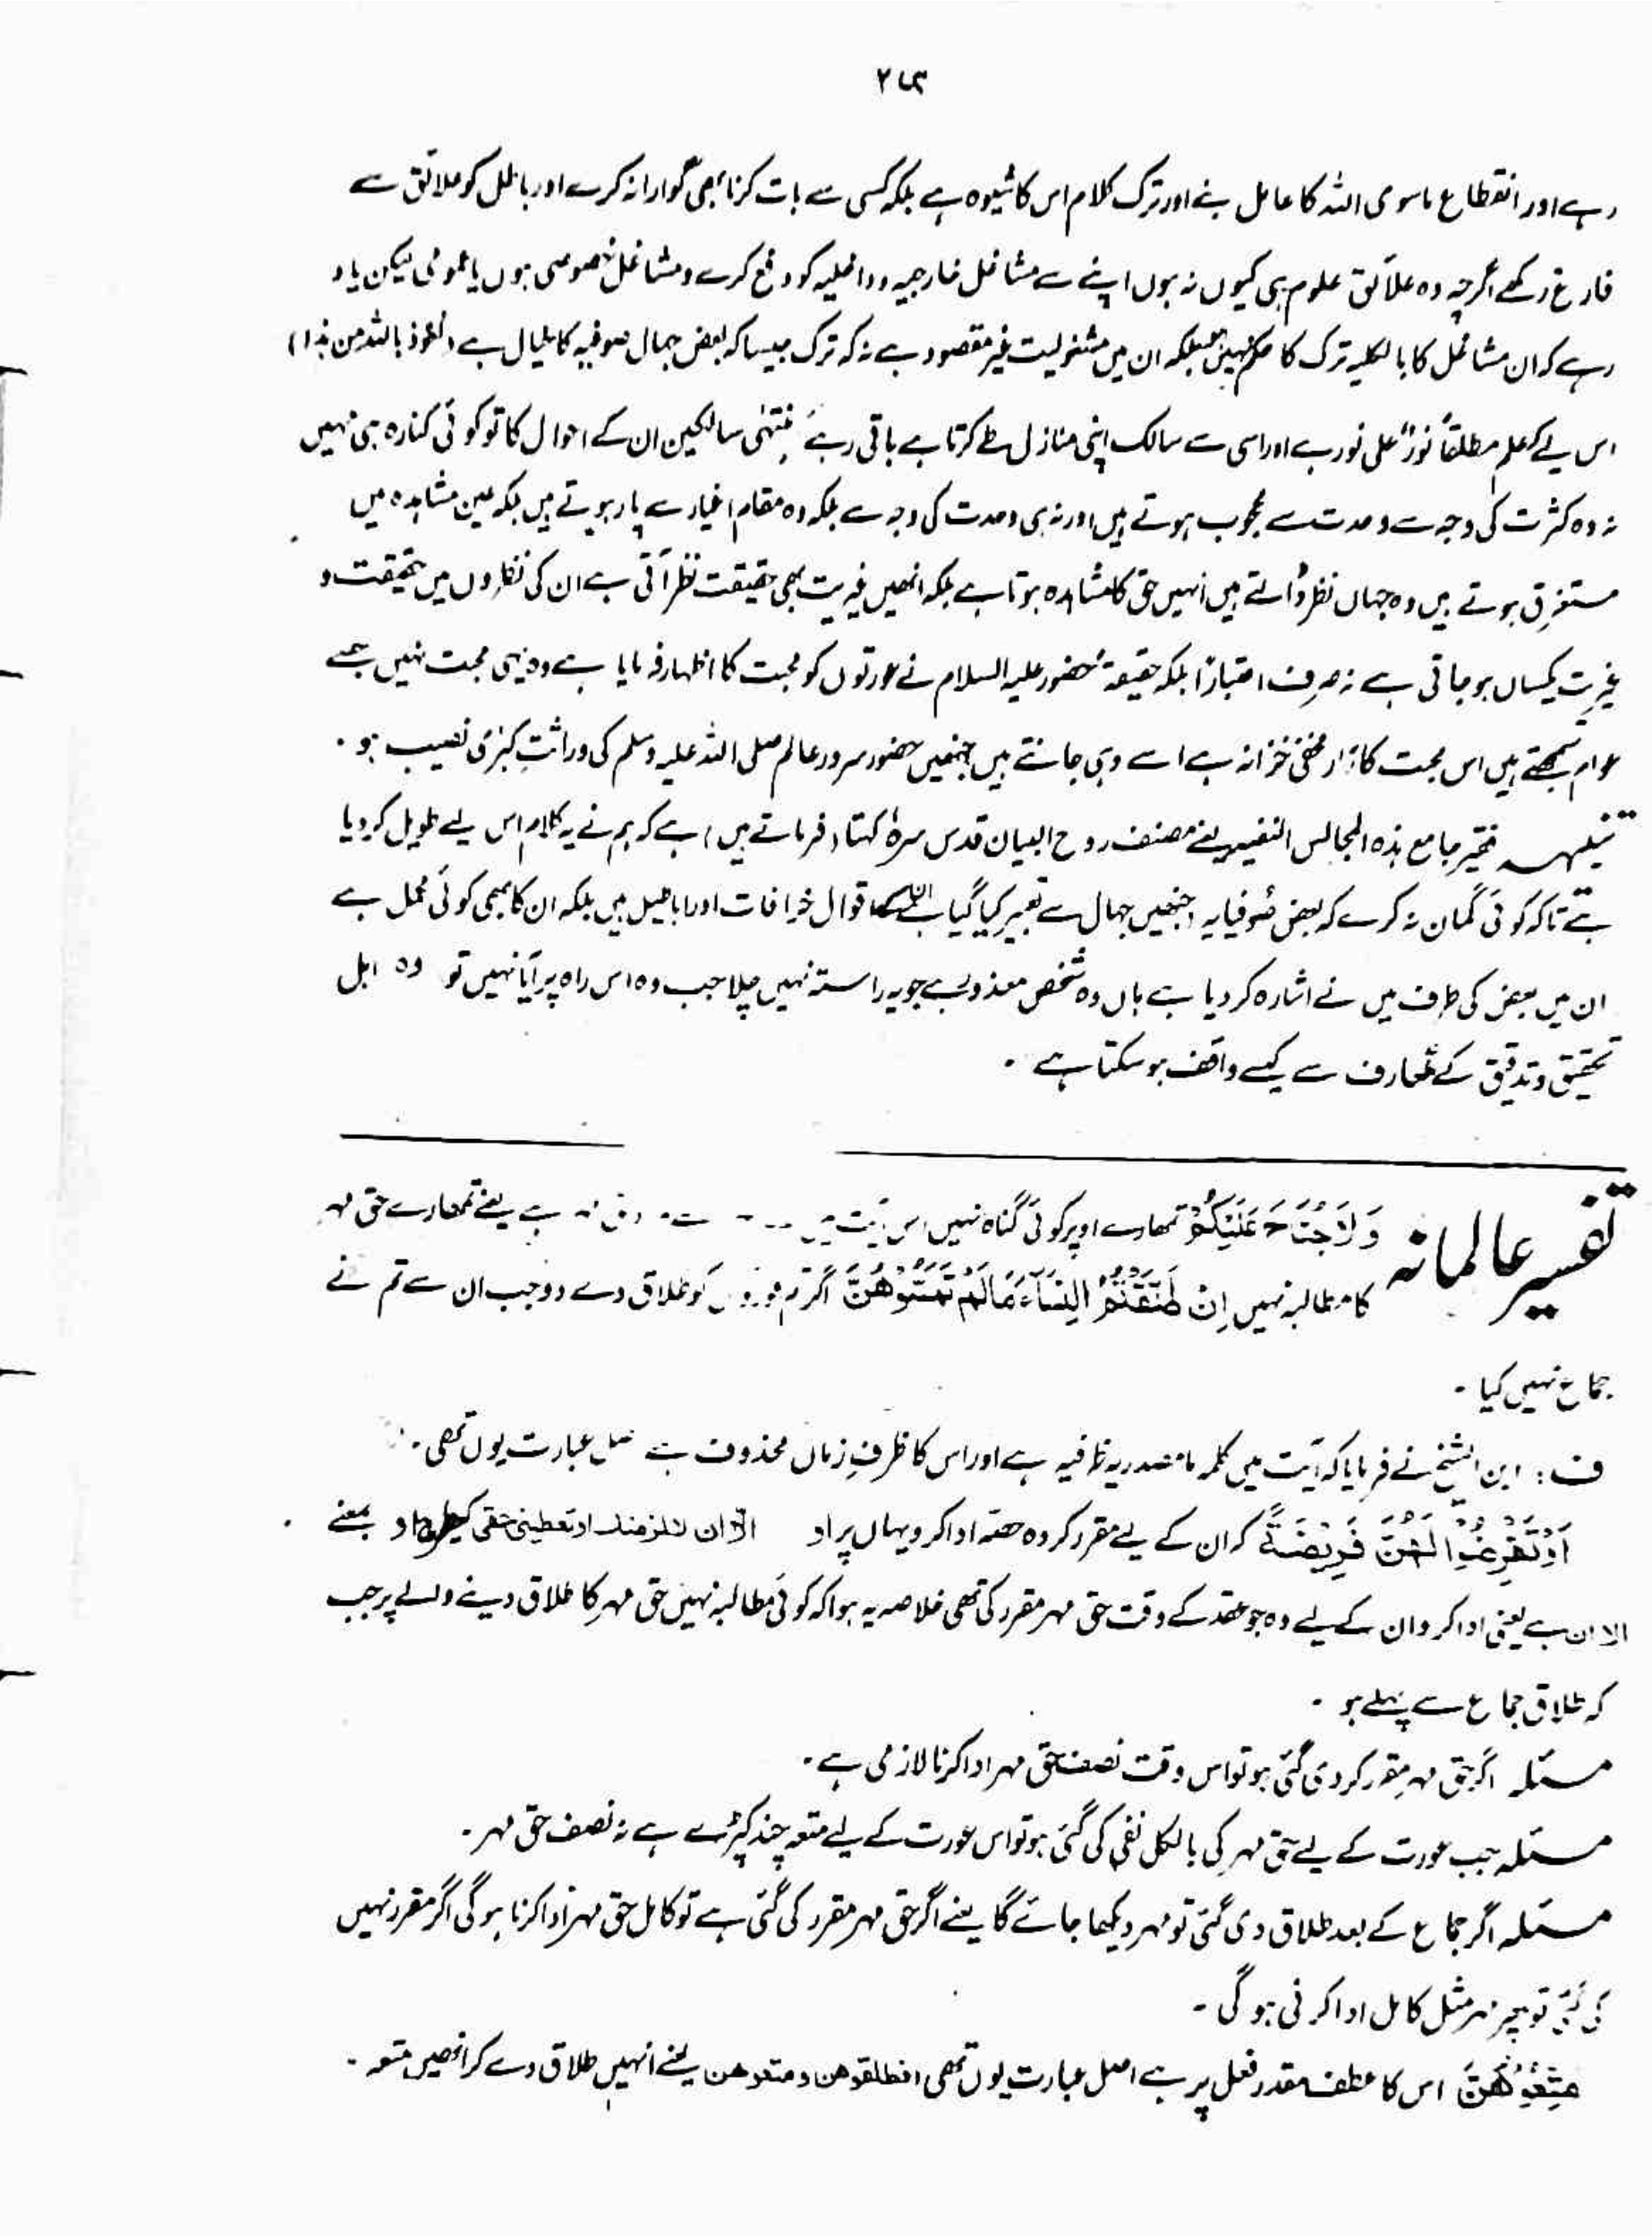 ۲۷۳
رہے اور انقطاع ماسوی اللہ کا عامل بنے اور ترک کلام اس کا شیوہ ہے بلکہ کسی سے بات کرنا بھی گوارا نہ کرے اور باطل کو علائق سے
فارغ رکھے اگرچہ وہ علائق علوم ہی کیوں نہ ہوں اپنے سے مشاغل خارجیہ و داخلیہ کو دفع کرے و مشاغل خصوصی ہوں یا عمومی لیکن یاد
رہے کہ ان مشاغل کا بالکلیہ ترک کا حکم نہیں بلکہ ان میں مشغولیت غیر مقصود ہے نہ کہ ترک جیسا کہ بعض جہال صوفیہ کا خیال ہے (نعوذ باللہ من ہذا)
اس لیے کہ علم مطلقاً نورٌ علی نور ہے اور اسی سے سالک اپنی منازل طے کرتا ہے باقی رہے منتہی سالکین ان کے احوال کا تو کوئی کنارہ ہی نہیں
نہ وہ کثرت کی وجہ سے وحدت سے محجوب ہوتے ہیں اور نہ ہی وحدت کی وجہ سے بلکہ وہ مقام اغیار سے پار ہوتے ہیں بلکہ عین مشاہدہ میں
مستغرق ہوتے ہیں وہ جہاں نظر ڈالتے ہیں انہیں حق کا مشاہدہ ہوتا ہے بلکہ انھیں غیریت بھی حقیقت نظر آتی ہے ان کی نگاہوں میں حقیقت و
غیریت یکساں ہو جاتی ہے نہ صرف اعتباراً بلکہ حقیقۃً حضور علیہ السلام نے عورتوں کو محبت کا اظہار فرمایا ہے وہ یہی محبت نہیں جسے
عوام سمجھتے ہیں اس محبت کا راز مخفی خزانہ ہے اسے وہی جانتے ہیں جنھیں حضور سرور عالم صلی اللہ علیہ وسلم کی وراثتِ کبریٰ نصیب ہو ۔
تنبیہہ فقیر جامع ہذہ المجالس النفیسہ یعنے مصنف روح البیان قدس سرہٗ کہتا (فرماتے ہیں) ہے کہ ہم نے یہ کلام اس لیے طویل کر دیا
ہے تاکہ کوئی گمان نہ کرے کہ بعض صوفیا یہ (جنھیں جہال سے تعبیر کیا گیا ہے) کے اقوال خرافات اور اباطیل ہیں بلکہ ان کا بھی کوئی محمل ہے
ان میں بعض کی طرف میں نے اشارہ کر دیا ہے ہاں وہ شخص معذور ہے جو یہ راستہ نہیں چلا جب وہ اس راہ پر آیا نہیں تو وہ اہل
تحقیق و تدقیق کے معارف سے کیسے واقف ہو سکتا ہے ۔
تفسیر عالمانہ
وَلَا جُنَاحَ عَلَیْکُمْ تمھارے اوپر کوئی گناہ نہیں اس آیت میں ہے یعنے تمھارے حق مہر
کا مطالبہ نہیں اِنْ طَلَّقْتُمُ النِّسَآءَ مَالَمْ تَمَسُّوْهُنَّ اگر تم عورتوں کو طلاق دے دو جب ان سے تم نے
جماع نہیں کیا ۔
ف : ابن الشیخ نے فرمایا کہ آیت میں کلمہ ما مصدریہ ظرفیہ ہے اور اس کا ظرفِ زمان محذوف ہے اصل عبارت یوں تھی ۔
اَوْ تَفْرِضُوْا لَهُنَّ فَرِیْضَةً کہ ان کے لیے مقرر کردہ حصہ ادا کرو یہاں پر او الا ان لالزمنک او تعطینی حقی کی طرح او بمعنے
الا ان ہے یعنی ادا کرو ان کے لیے وہ جو عقد کے وقت حق مہر مقرر کی تھی خلاصہ یہ ہوا کہ کوئی مطالبہ نہیں حق مہر کا طلاق دینے والے پر جب
کہ طلاق جماع سے پہلے ہو ۔
مسئلہ اگر حق مہر مقرر کر دی گئی ہو تو اس وقت نصف حق مہر ادا کرنا لازمی ہے ۔
مسئلہ جب عورت کے لیے حق مہر کی بالکل نفی کی گئی ہو تو اس عورت کے لیے متعہ چند کپڑے ہے نہ نصف حق مہر ۔
مسئلہ اگر جماع کے بعد طلاق دی گئی تو مہر دیکھا جائے گا یعنے اگر حق مہر مقرر کی گئی ہے تو کامل حق مہر ادا کرنا ہو گی اگر مقرر نہیں
کی گئی تو پھر مہر مثل کامل ادا کرنی ہو گی ۔
مَتِّعُوْهُنَّ اس کا عطف مقدر فعل پر ہے اصل عبارت یوں تھی فطلقوھن و متعوھن یعنے انہیں طلاق دے کر انھیں متعہ ۔